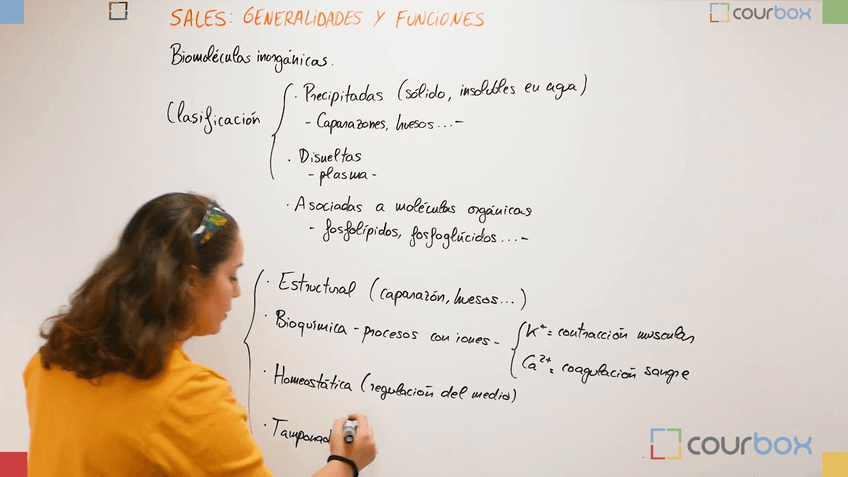 SALES: GENERALIDADES Y FUNCIONES
courbox
Biomoléculas inorgánicas.
Clasificación
· Precipitadas (sólido, insolubles en agua)
- Caparazones, huesos...-
· Disueltas
- plasma -
· Asociadas a moléculas orgánicas
- fosfolípidos, fosfoglúcidos...-
· Estructural (caparazón, huesos...)
· Bioquímica - procesos con iones -
K⁺ = contracción muscular
Ca²⁺ = coagulación sangre
· Homeostática (regulación del medio)
· Tamponad
courbox